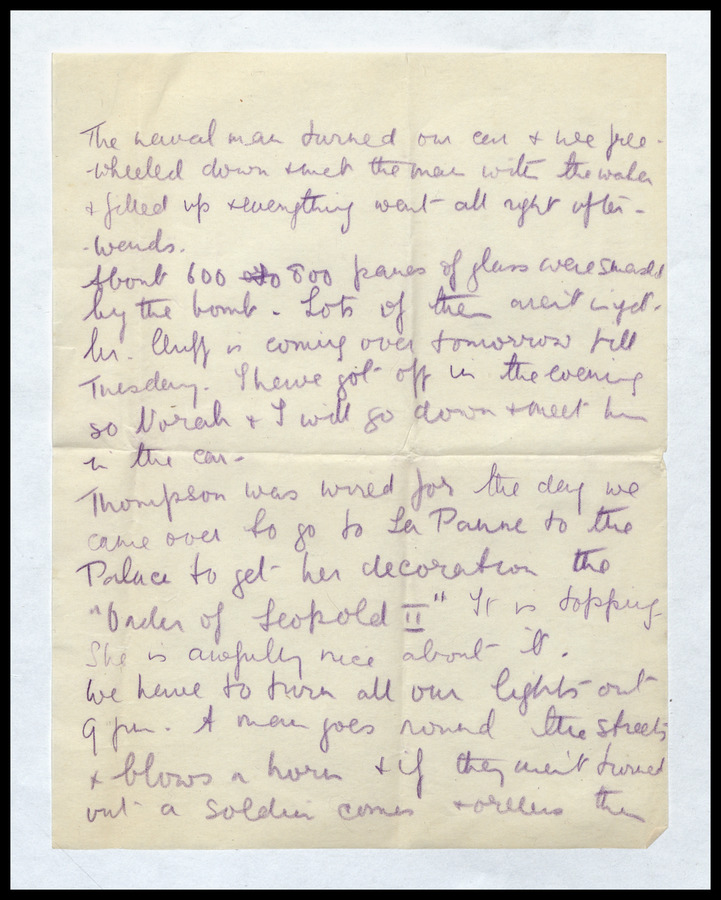 The naval man turned our car & we free-
-wheeled down & met the man with the water
& filled up & everything went all right after-
-wards.
About 600 to 800 panes of glass were smashed
by the bomb. Lots of them aren't in yet.
Mr. Cluff is coming over tomorrow till
Tuesday. I have got off in the evening
so Norah & I will go down & meet him
in the car.
Thompson was wired for the day we
came over to go to La Panne to the
Palace to get her decoration the
"Order of Leopold II" It is topping
She is awfully nice about it.
We have to turn all our lights out
9 pm. A man goes round the streets
& blows a horn & if they aren't turned
out a soldier comes & orders them